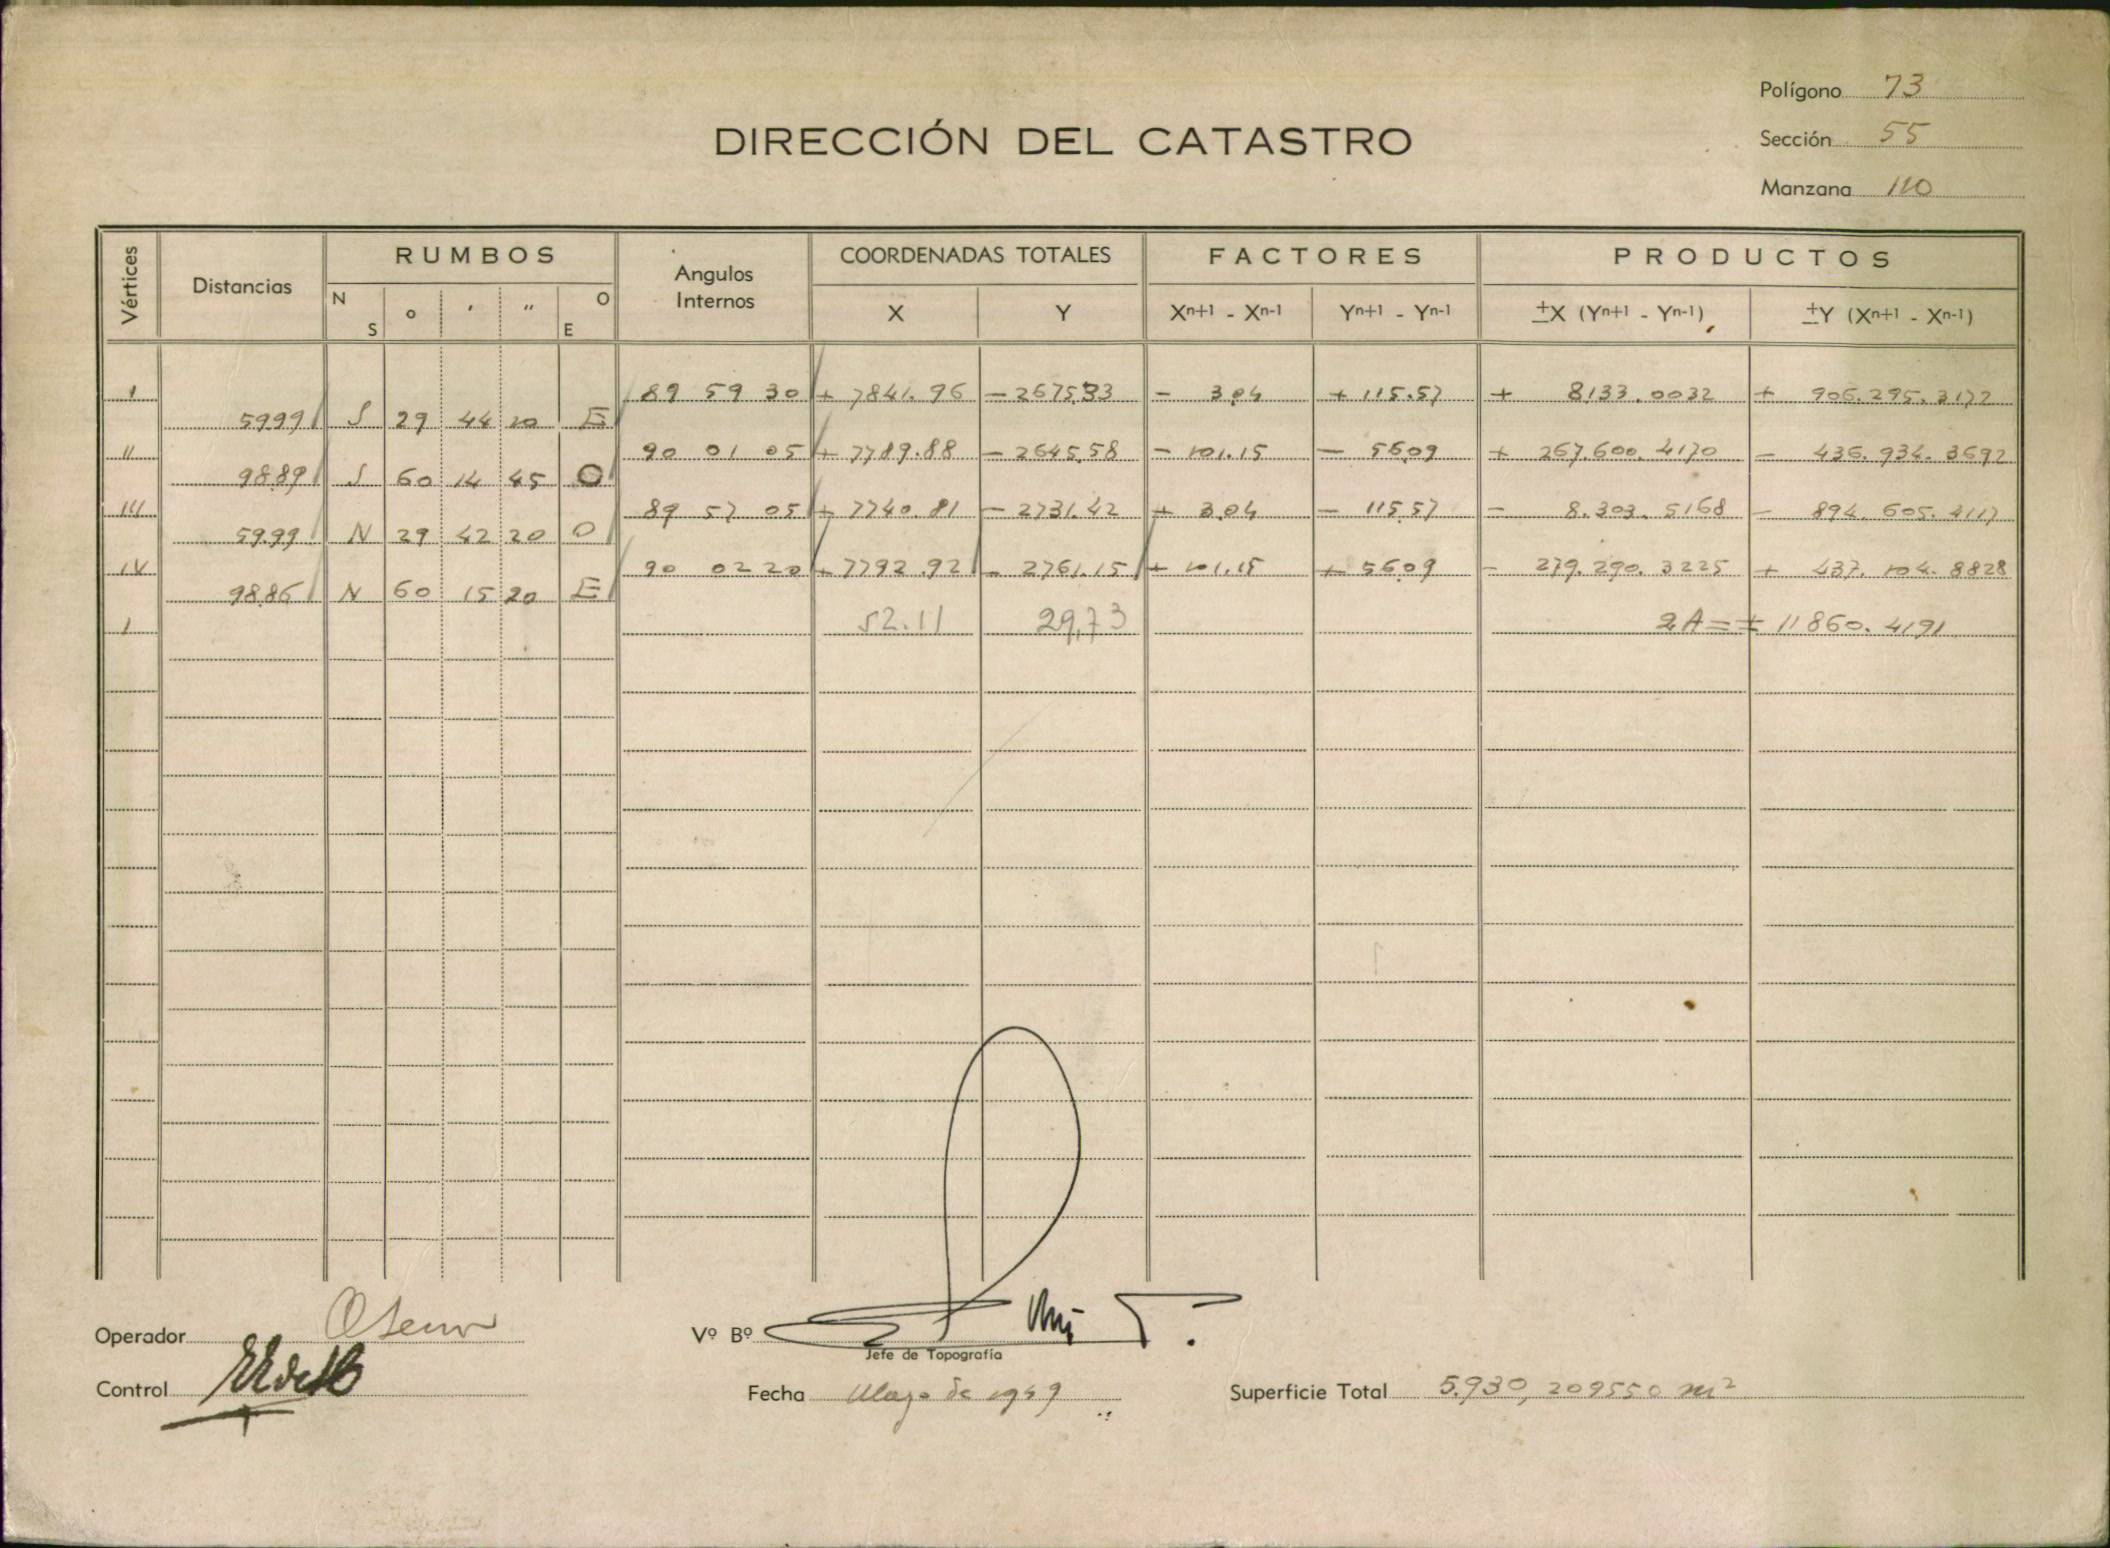 Polígono 73
DIRECCIÓN DEL CATASTRO
Sección 55
Manzana 110
Vértices Distancias RUMBOS Angulos Internos COORDENADAS TOTALES FACTORES PRODUCTOS
N S ° ' " O E X Y Xn+1 - Xn-1 Yn+1 - Yn-1 ±X (Yn+1 - Yn-1) ±Y (Xn+1 - Xn-1)
I 89 59 30 + 7841.96 - 2675.33 - 3.04 + 115.57 + 8133.0032 + 906.295.3172
59.99 S 29 44 10 E
II 90 01 05 + 7789.88 - 2645.58 - 101.15 - 56.09 + 267.600.4170 - 436.934.3692
98.89 S 60 14 45 O
III 89 57 05 + 7740.81 - 2731.42 + 3.04 - 115.57 - 8.303.5168 - 894.605.4117
59.99 N 29 42 20 O
IV 90 02 20 + 7792.92 - 2761.15 + 101.15 + 56.09 - 279.290.3225 + 437.104.8828
98.86 N 60 15 20 E
I 52.11 29.73 2A = ± 11860.4191
Operador
Vº Bº
Jefe de Topografía
Control
Fecha Mayo de 1949
Superficie Total 5.930,209550 m²